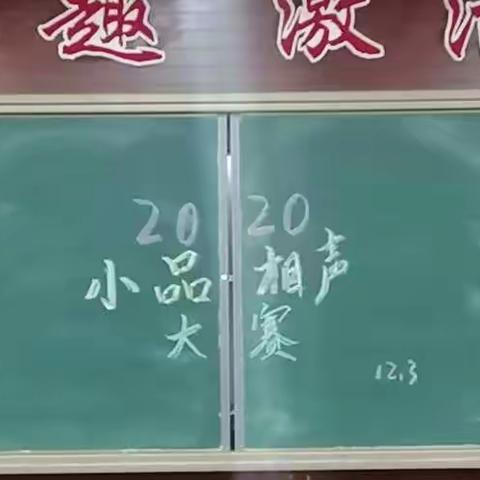 趣 激
2020
小品相声
大赛
12.3